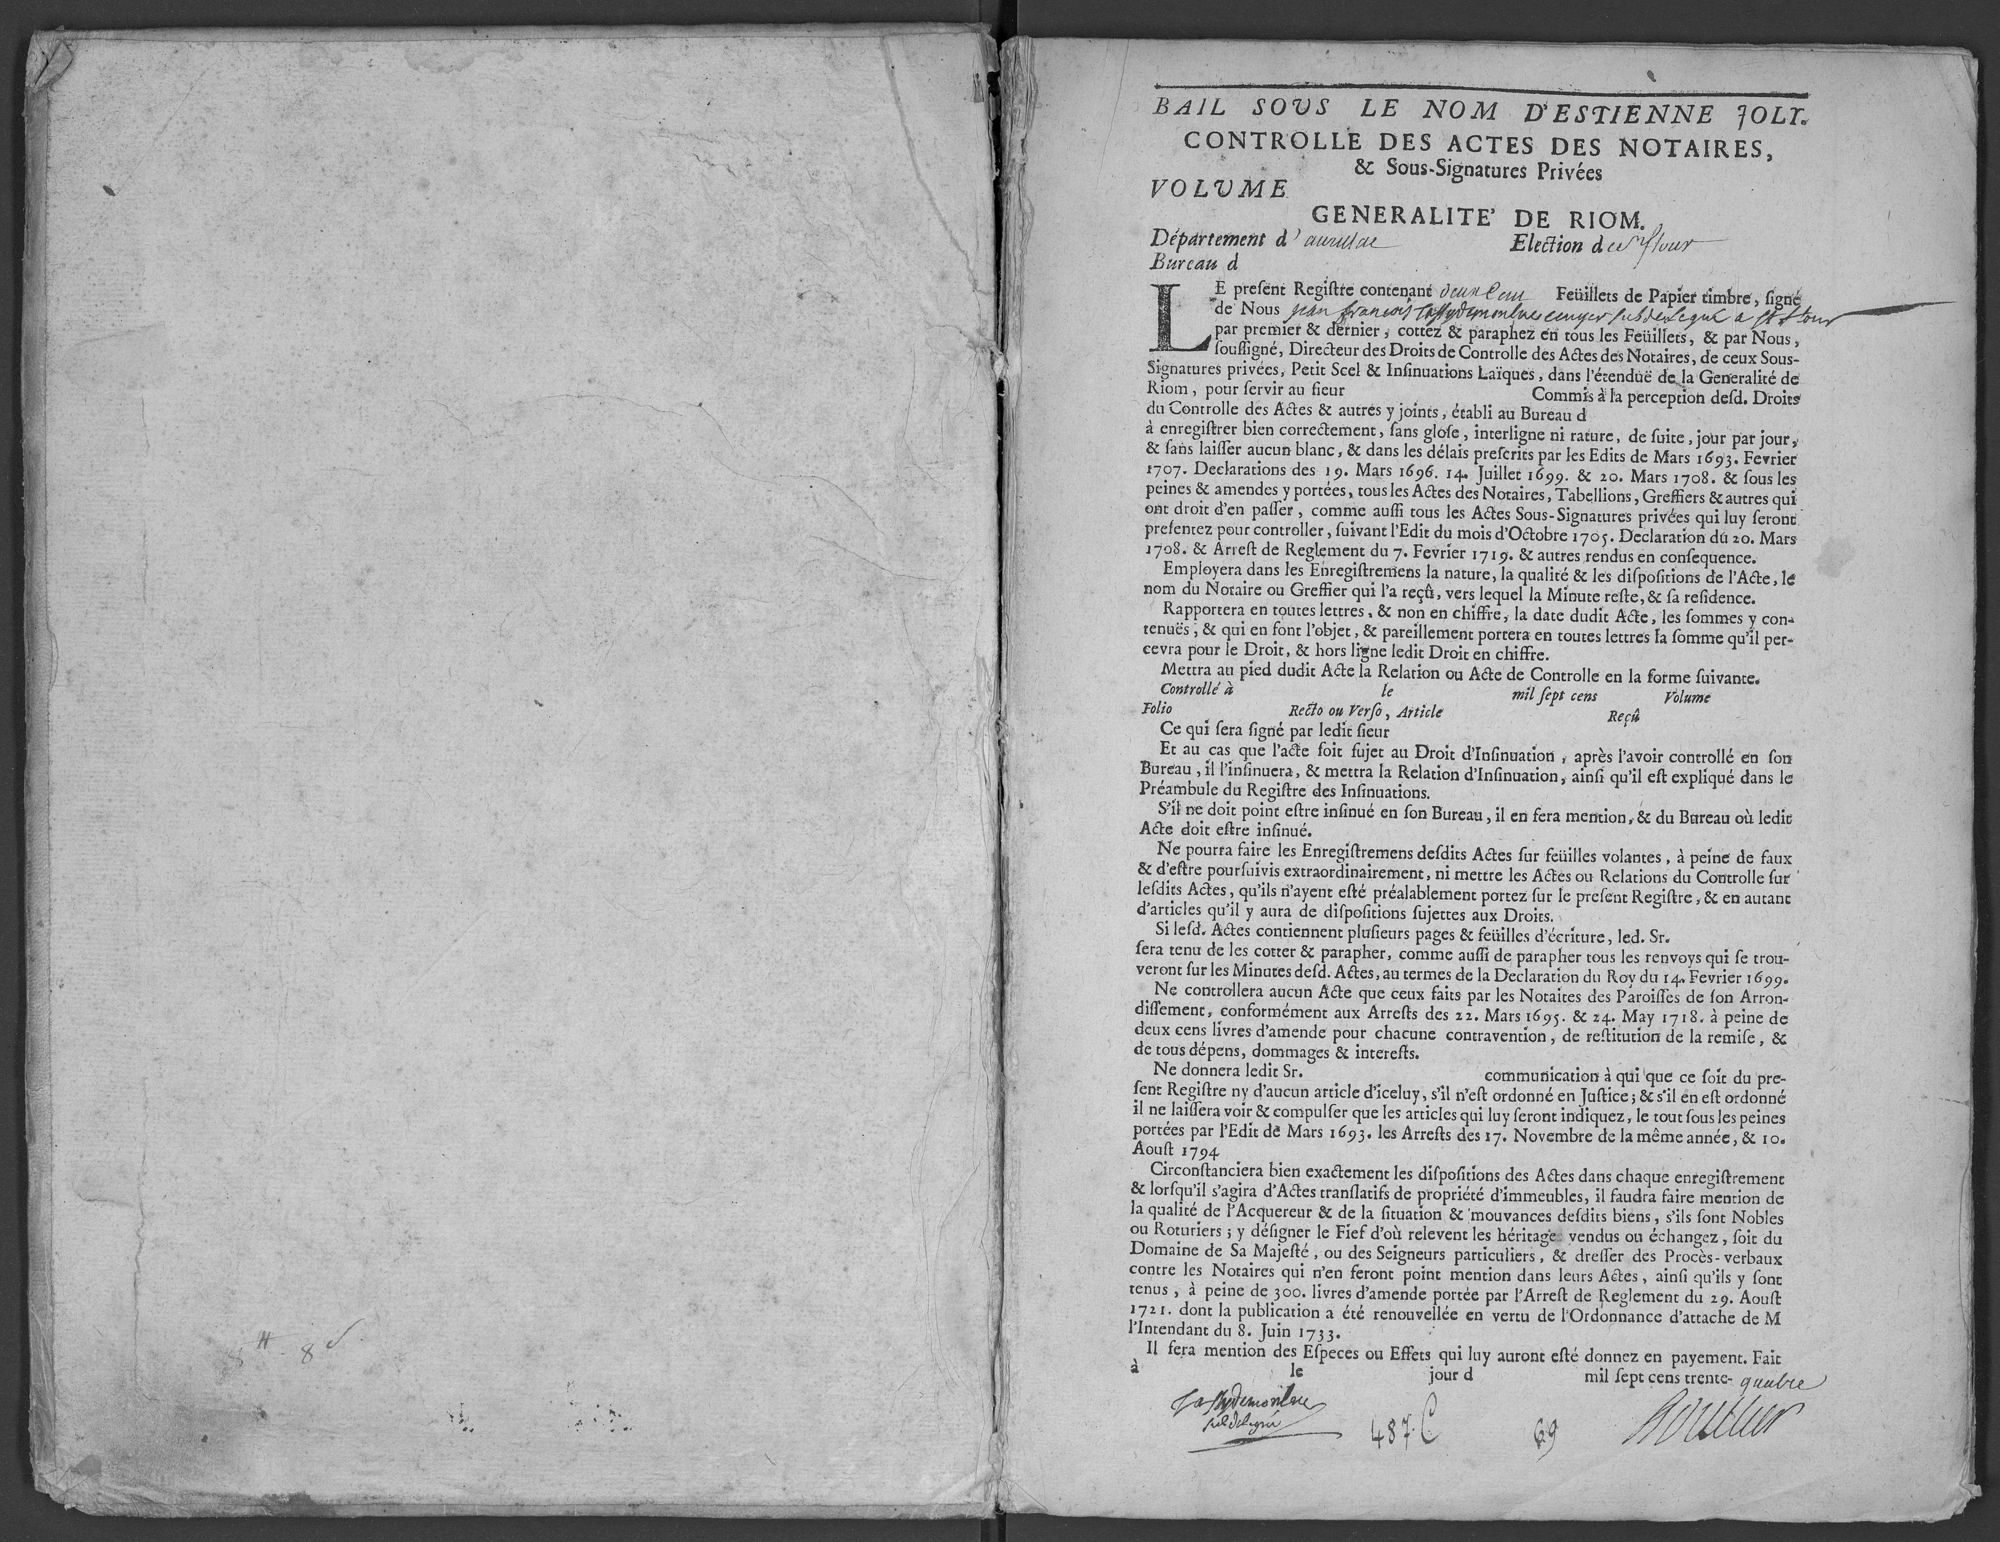 BAIL SOUS LE NOM D'ESTIENNE JOLY.
CONTROLLE DES ACTES DES NOTAIRES,
& Sous-Signatures Privées
VOLUME
GENERALITE' DE RIOM.
Département d'aurillac Election de St flour
Bureau d
LE preſent Regiſtre contenant deux cent Feüillets de Papier timbre, ſigné
de Nous jean françois subdelegué a st flour
par premier & dernier, cottez & paraphez en tous les Feüillets, & par Nous,
ſouſſigné, Directeur des Droits de Controlle des Actes des Notaires, de ceux Sous-
Signatures privées, Petit Scel & Inſinuations Laïques, dans l'étenduë de la Generalité de
Riom, pour ſervir au ſieur Commis à la perception deſd. Droits
du Controlle des Actes & autres y joints, établi au Bureau d
à enregiſtrer bien correctement, ſans gloſe, interligne ni rature, de ſuite, jour par jour,
& ſans laiſſer aucun blanc, & dans les délais preſcrits par les Edits de Mars 1693. Fevrier
1707. Declarations des 19. Mars 1696. 14. Juillet 1699. & 20. Mars 1708. & ſous les
peines & amendes y portées, tous les Actes des Notaires, Tabellions, Greffiers & autres qui
ont droit d'en paſſer, comme auſſi tous les Actes Sous-Signatures privées qui luy ſeront
preſentez pour controller, ſuivant l'Edit du mois d'Octobre 1705. Declaration du 20. Mars
1708. & Arreſt de Reglement du 7. Fevrier 1719. & autres rendus en conſequence.
Employera dans les Enregiſtremens la nature, la qualité & les diſpoſitions de l'Acte, le
nom du Notaire ou Greffier qui l'a reçû, vers lequel la Minute reſte, & ſa reſidence.
Rapportera en toutes lettres, & non en chiffre, la date dudit Acte, les ſommes y con-
tenuës, & qui en font l'objet, & pareillement portera en toutes lettres la ſomme qu'il per-
cevra pour le Droit, & hors ligne ledit Droit en chiffre.
Mettra au pied dudit Acte la Relation ou Acte de Controlle en la forme ſuivante.
Controllé à le mil ſept cens Volume
Folio Recto ou Verſo, Article Reçû
Ce qui ſera ſigné par ledit ſieur
Et au cas que l'acte ſoit ſujet au Droit d'Inſinuation, après l'avoir controllé en ſon
Bureau, il l'inſinuera, & mettra la Relation d'Inſinuation, ainſi qu'il eſt expliqué dans le
Préambule du Regiſtre des Inſinuations.
S'il ne doit point eſtre inſinué en ſon Bureau, il en fera mention, & du Bureau où ledit
Acte doit eſtre inſinué.
Ne pourra faire les Enregiſtremens deſdits Actes ſur feüilles volantes, à peine de faux
& d'eſtre pourſuivis extraordinairement, ni mettre les Actes ou Relations du Controlle ſur
leſdits Actes, qu'ils n'ayent eſté préalablement portez ſur le preſent Regiſtre, & en autant
d'articles qu'il y aura de diſpoſitions ſujettes aux Droits.
Si leſd. Actes contiennent pluſieurs pages & feüilles d'écriture, led. Sr.
ſera tenu de les cotter & parapher, comme auſſi de parapher tous les renvoys qui ſe trou-
veront ſur les Minutes deſd. Actes, au termes de la Declaration du Roy du 14. Fevrier 1699.
Ne controllera aucun Acte que ceux faits par les Notaires des Paroiſſes de ſon Arron-
diſſement, conformément aux Arreſts des 22. Mars 1695. & 24. May 1718. à peine de
deux cens livres d'amende pour chacune contravention, de reſtitution de la remiſe, &
de tous dépens, dommages & intereſts.
Ne donnera ledit Sr. communication à qui que ce ſoit du pre-
ſent Regiſtre ny d'aucun article d'iceluy, s'il n'eſt ordonné en Juſtice; & s'il en eſt ordonné
il ne laiſſera voir & compulſer que les articles qui luy ſeront indiquez, le tout ſous les peines
portées par l'Edit de Mars 1693. les Arreſts des 17. Novembre de la même année, & 10.
Aouſt 1794
Circonſtanciera bien exactement les diſpoſitions des Actes dans chaque enregiſtrement
& lorſqu'il s'agira d'Actes tranſlatifs de propriété d'immeubles, il faudra faire mention de
la qualité de l'Acquereur & de la ſituation & mouvances deſdits biens, s'ils ſont Nobles
ou Roturiers; y déſigner le Fief d'où relevent les héritage vendus ou échangez, ſoit du
Domaine de Sa Majeſté, ou des Seigneurs particuliers, & dreſſer des Procès-verbaux
contre les Notaires qui n'en feront point mention dans leurs Actes, ainſi qu'ils y ſont
tenus, à peine de 300. livres d'amende portée par l'Arreſt de Reglement du 29. Aouſt
1721. dont la publication a été renouvellée en vertu de l'Ordonnance d'attache de M
l'Intendant du 8. Juin 1733.
Il fera mention des Eſpeces ou Effets qui luy auront eſté donnez en payement. Fait
à le jour d mil ſept cens trente-quatre
subdelegué
487 C 69